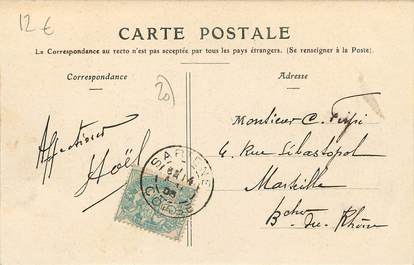 12 €
CARTE POSTALE
La Correspondance au recto n'est pas acceptée par tous les pays étrangers. (Se renseigner à la Poste).
Correspondance
Adresse
20
Affectueux
Noël
Monsieur C.
6. Rue Sébastopol
Marseille
Bches du Rhône
SARTENE
CORSE